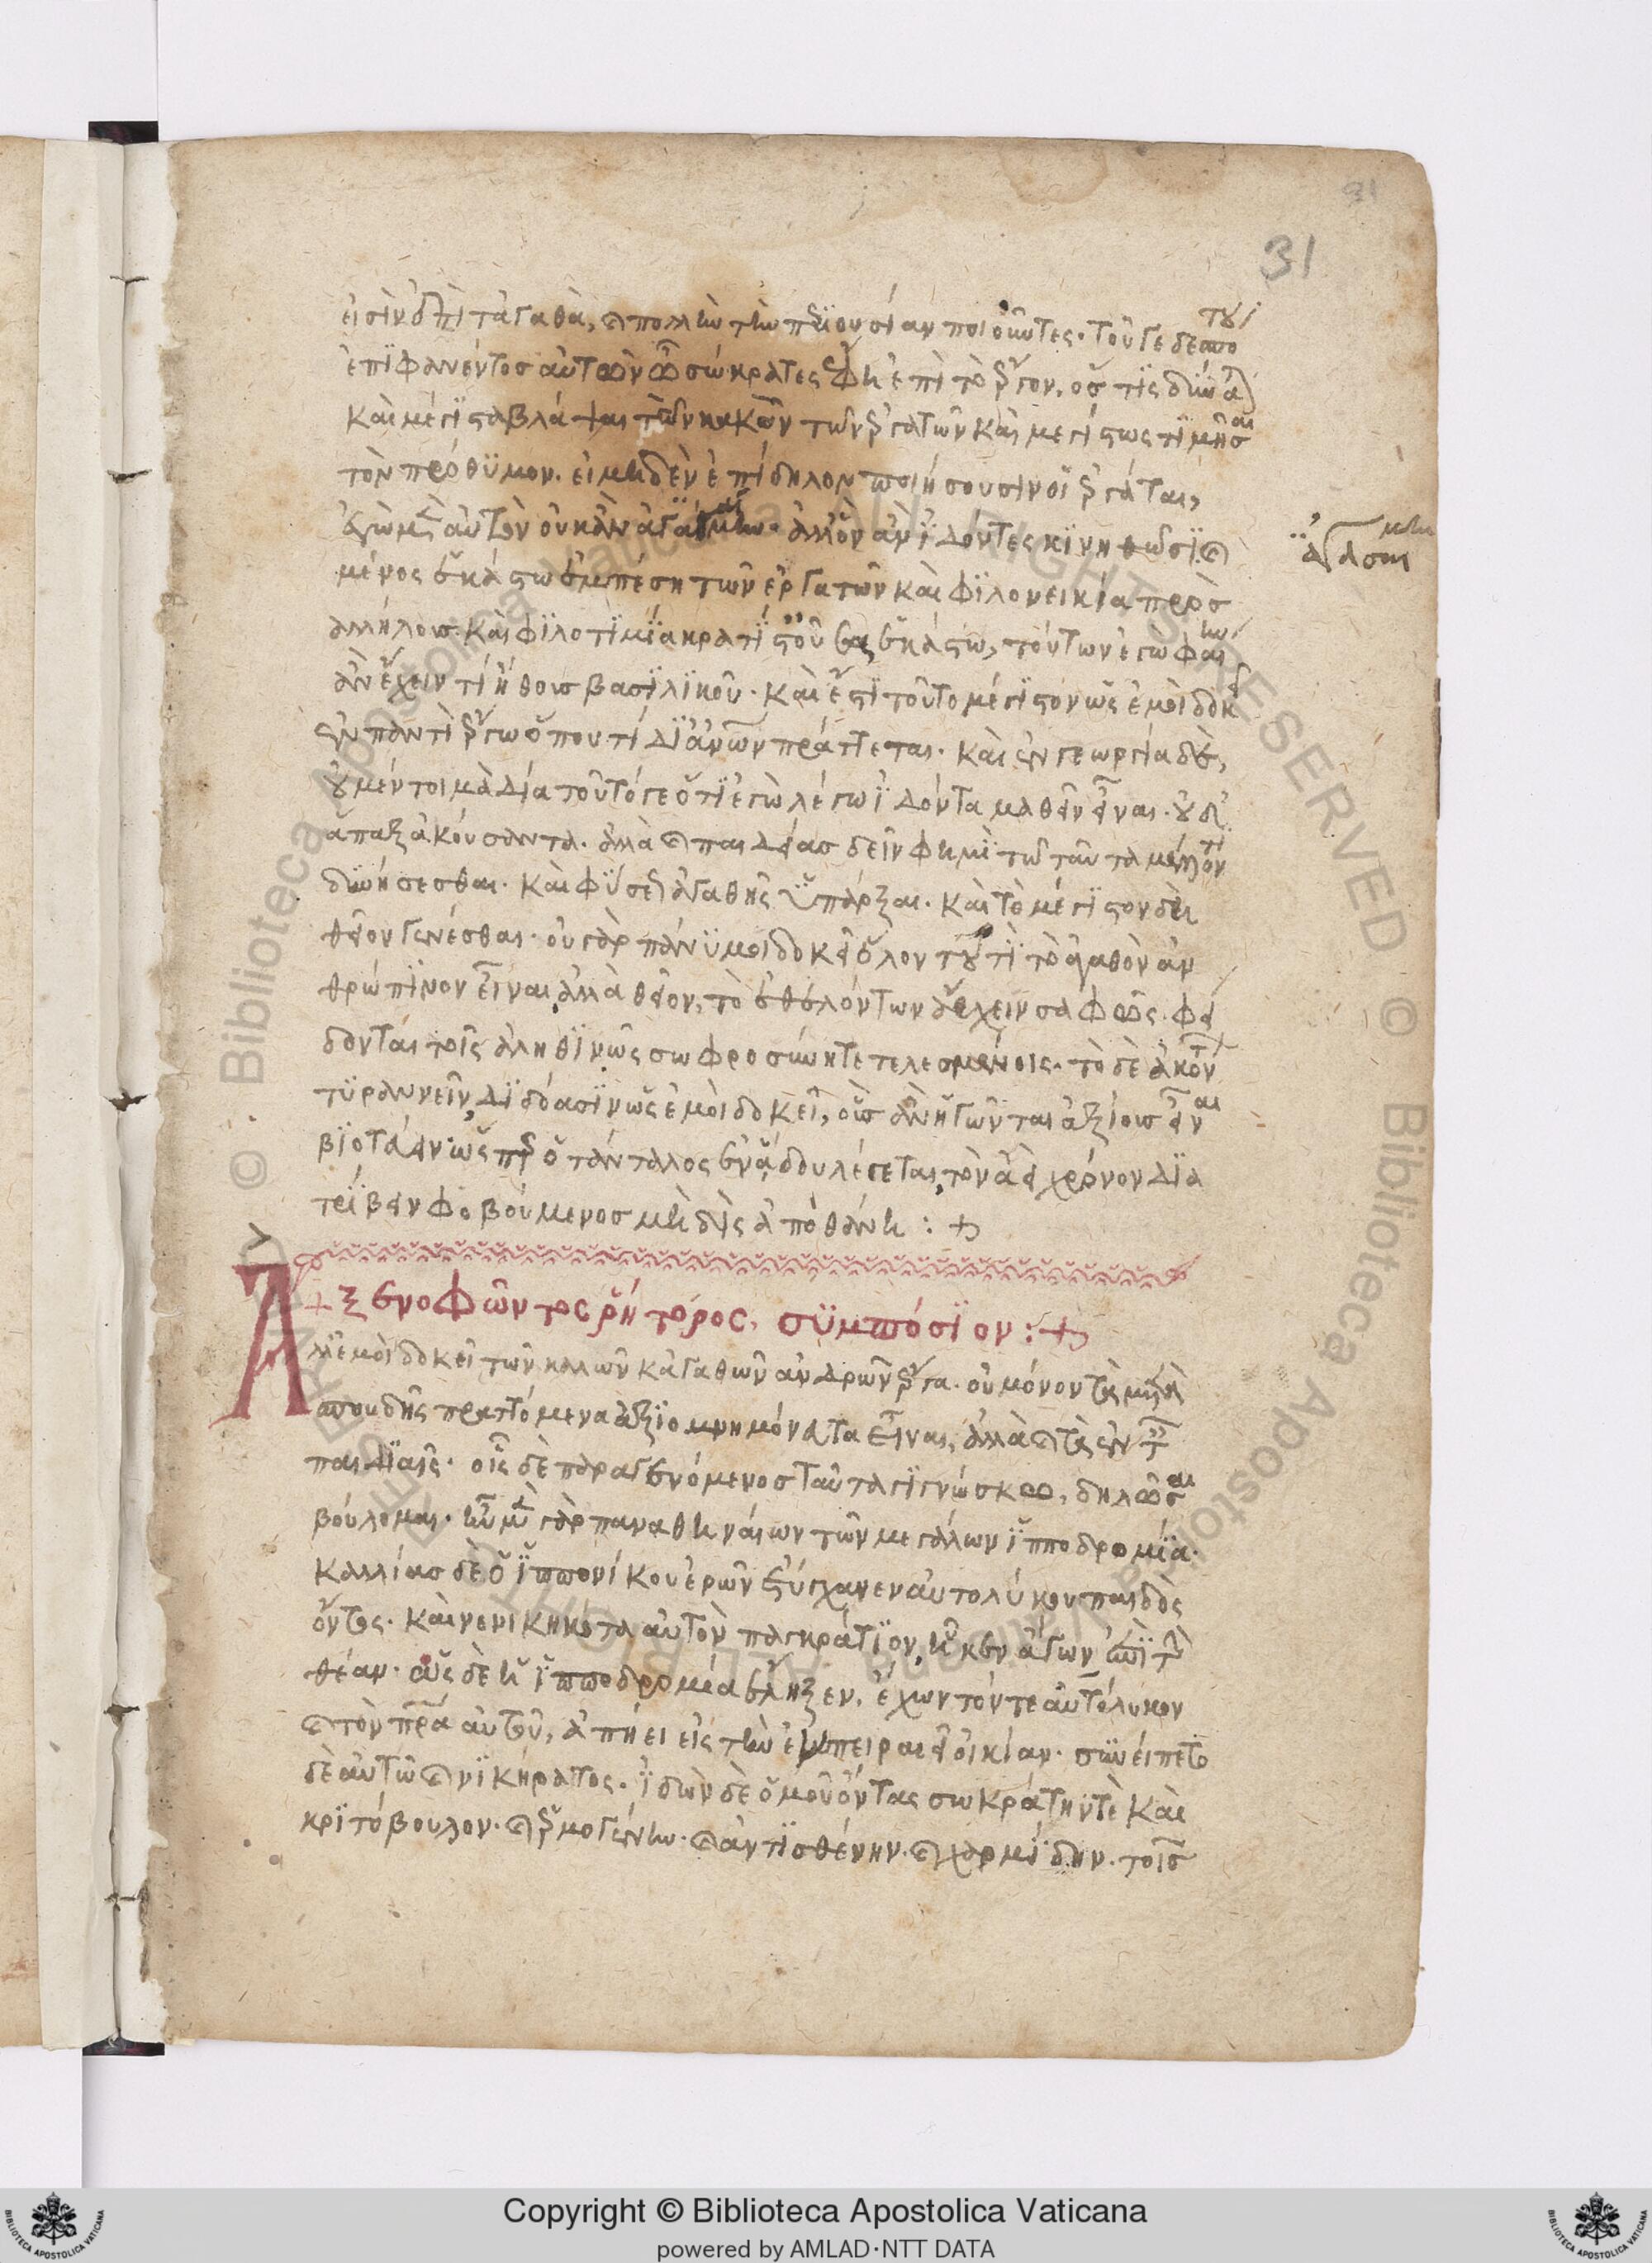 31
εἰσὶν ἐπὶ τἀγαθὰ, καὶ πολλὴν τὴν περιουσίαν ποιοῦντες. τοῦ γε δεσπότου
ἐπιφανέντος αὐτῶν ὦ σώκρατες ἔφη ἐπὶ τὸ ἔργον, ὅς τις δύναται
καὶ μέγιστα βλάψαι τῶν κακῶν τῶν ἐργατῶν καὶ μεγίστως τιμῆσαι
τὸν πρόθυμον. εἰ μηδὲν ἐπίδηλον ποιήσουσιν οἱ ἐργάται,
ἐγὼ μὲν αὐτὸν οὐκ ἂν ἀγαίμην. ἀλλ' ὃν ἂν ἰδόντες κινηθῶσι καὶ
ἀγασαίμην
μένος ἑκάστω ἐμπέση τῶν ἐργατῶν καὶ φιλονεικία πρὸς
ἀλλήλους. καὶ φιλοτιμία κρατίστου ἑκάστω, τοῦτον ἐγὼ φαίην
ἂν ἔχειν τὶ ἤθους βασιλικοῦ. καὶ ἔστι τοῦτο μέγιστον ὡς ἐμοὶ δοκεῖ
ἐν παντὶ ἔργω ὅπου τί δι' ἀνθρώπων πράττεται. καὶ ἐν γεωργία δὲ,
οὐ μέντοι μὰ δία τοῦτό γε ὅτι ἐγὼ λέγω ἰδόντα μαθεῖν εἶναι. οὐδ'
ἅπαξ ἀκούσαντα. ἀλλὰ καὶ παιδείας δεῖν φημὶ τῶ ταῦτα μέλλοντι
δυνήσεσθαι. καὶ φύσεως ἀγαθῆς ὑπάρξαι. καὶ τὸ μέγιστον δὴ
θεῖον γενέσθαι. οὐ γὰρ πάνυ μοι δοκεῖ ὅλον τουτὶ τὸ ἀγαθὸν ἀν
θρώπινον εἶναι, ἀλλὰ θεῖον, τὸ ἐθελόντων ἄρχειν σαφῶς. φεί
δονται τοῖς ἀληθινῶς σωφροσύνη τετελεσμένοις. τὸ δὲ ἀκόντων
τυραννεῖν, διδόασιν ὡς ἐμοὶ δοκεῖ, οὓς ἂν ἡγῶνται ἀξίους εἶναι
βιοτεύειν ὥσπερ ὁ τάνταλος ἐν ἅδου λέγεται, τὸν ἀεὶ χρόνον δια
τρίβειν φοβούμενος μὴ δὶς ἀποθάνη : +
+ ξενοφῶντος ῥήτορος, συμπόσιον : +
Ἀλλ' ἐμοὶ δοκεῖ τῶν καλῶν κἀγαθῶν ἀνδρῶν ἔργα. οὐ μόνον τὰ μετὰ
σπουδῆς πραττόμενα ἀξιομνημόνευτα εἶναι, ἀλλὰ καὶ τὰ ἐν ταῖς
παιδιαῖς. οἷς δὲ παραγενόμενος ταῦτα γιγνώσκω, δηλῶσαι
βούλομαι. ἦν μὲν γὰρ παναθηναίων τῶν μεγάλων ἱπποδρομία.
καλλίας δὲ ὁ ἱππονίκου ἐρῶν ἐτύγχανεν αὐτολύκου παιδὸς
ὄντος. καὶ νενικηκότα αὐτὸν παγκράτιον, ἧκεν ἄγων ἐπὶ τὴν
θέαν. ὡς δὲ ἡ ἱπποδρομία ἔληξεν, ἔχων τόν τε αὐτόλυκον
καὶ τὸν πατέρα αὐτοῦ, ἀπήει εἰς τὴν ἐν πειραιεῖ οἰκίαν. συνείπετο
δὲ αὐτῶ καὶ νικήρατος. ἰδὼν δὲ ὁμοῦ ὄντας σωκράτην τὲ καὶ
κριτόβουλον. καὶ ἑρμογένην. καὶ ἀντισθένην. καὶ χαρμίδην. τοῖς
Copyright © Biblioteca Apostolica Vaticana
powered by AMLAD·NTT DATA